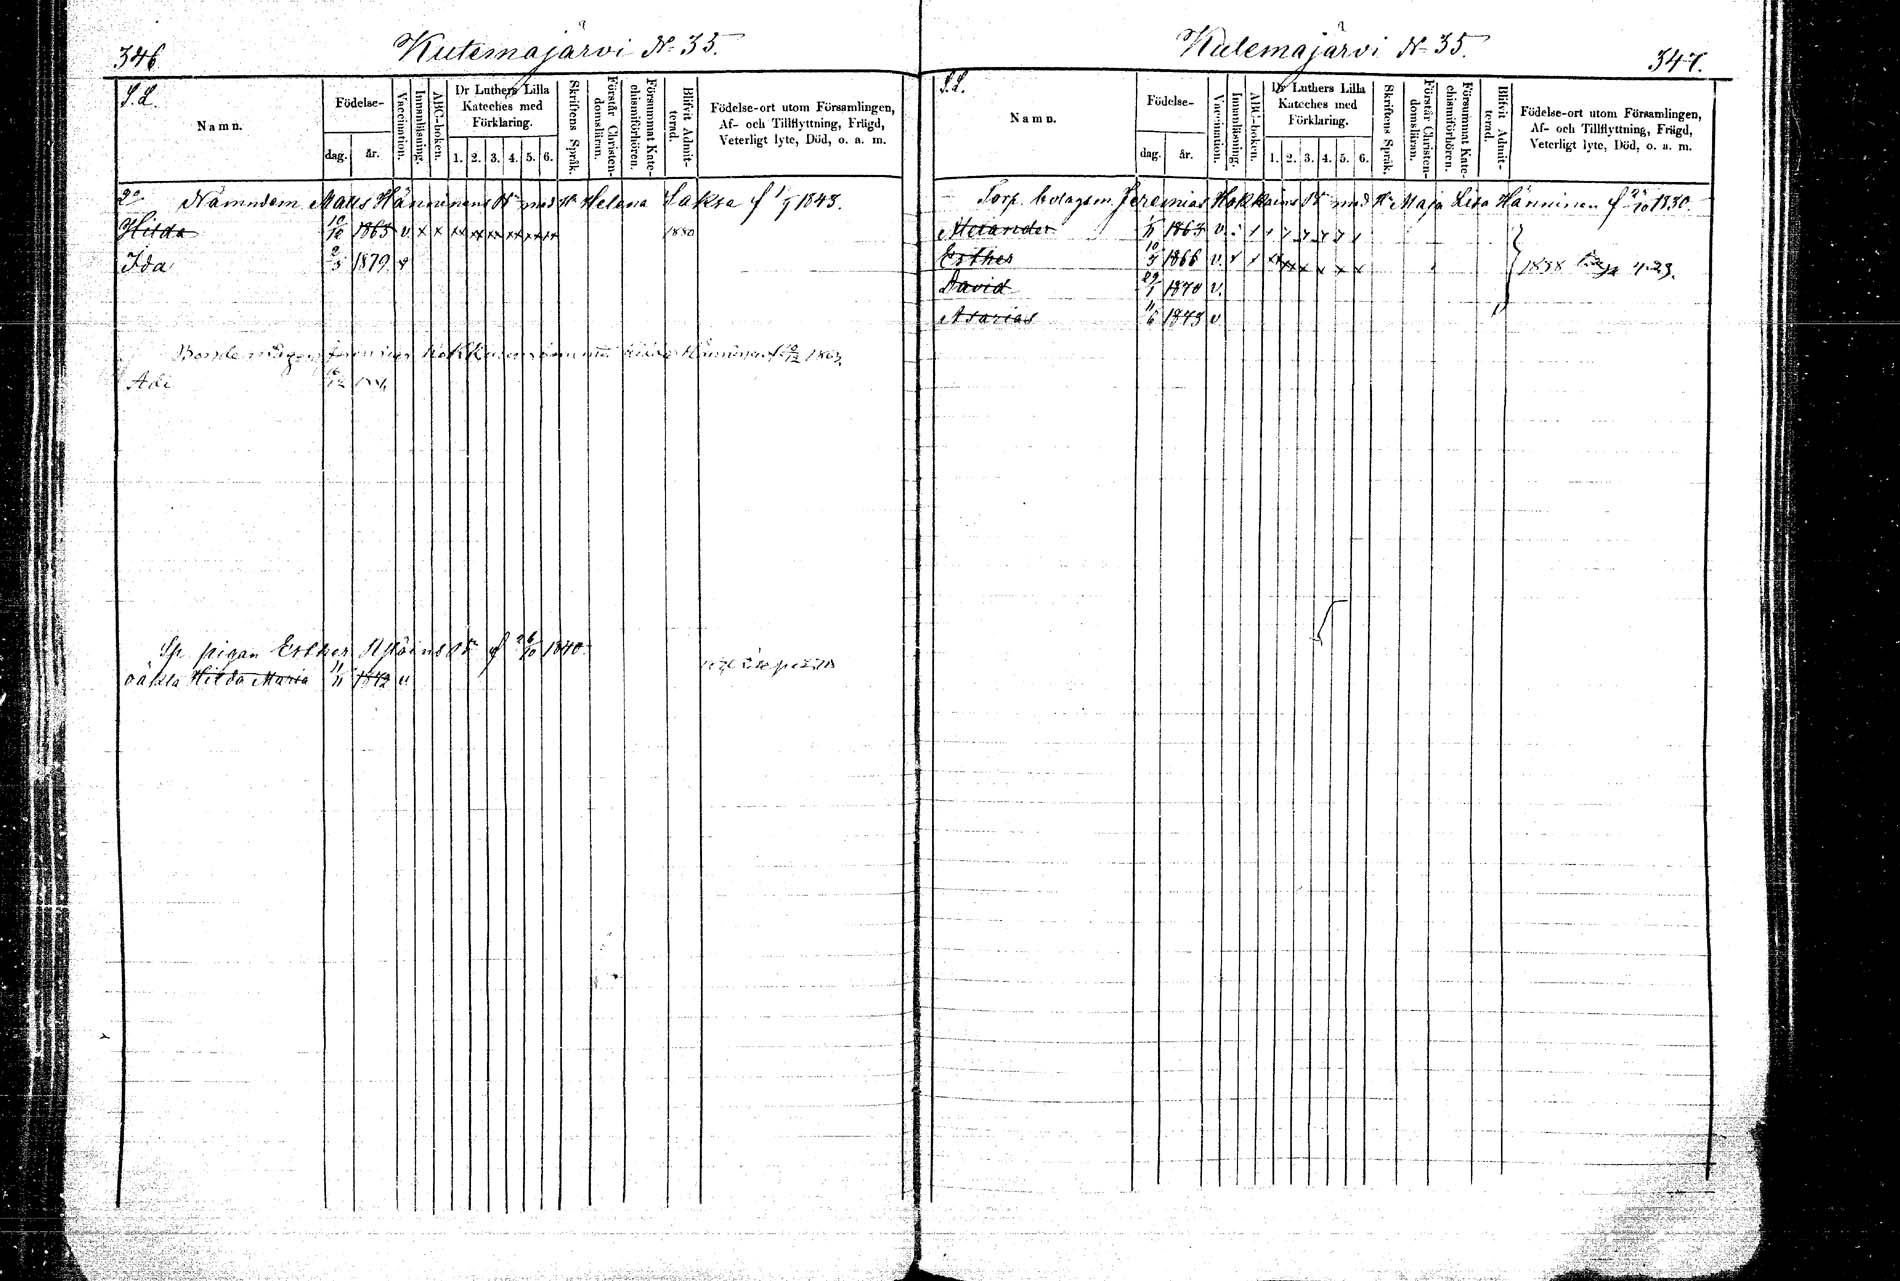 346
Kutemajärvi N:o 35.
S. L.
Namn.
Födelse-
dag.
år.
Vaccination.
Innanläsning.
ABC-boken.
Dr Luthers Lilla Kateches med Förklaring.
1. 2. 3. 4. 5. 6.
Skriftens Språk.
Förstår Christendomsläran.
Försummat Katechismiförhören.
Blifvit Admitterad.
Födelse-ort utom Församlingen, Af- och Tillflyttning, Frägd, Veterligt lyte, Död, o. a. m.
2o Nämndem Matts Hänninens Br med H. Helena Saksa f 1/9 1843.
Hilda 10/12 1863 v. x x xx xx xx xx xx xx 1880
Ida 2/3 1879 v
Hokkanen Hilda Hänninen f. 10/12 1863.
16/12
Sp pigan Esther f 26/10 1840.
oäkta Hilda Maria 11/11 1872 v
Kutemajärvi N:o 35.
347.
S. L.
Namn.
Födelse-
dag.
år.
Vaccination.
Innanläsning.
ABC-boken.
Dr Luthers Lilla Kateches med Förklaring.
1. 2. 3. 4. 5. 6.
Skriftens Språk.
Förstår Christendomsläran.
Försummat Katechismiförhören.
Blifvit Admitterad.
Födelse-ort utom Församlingen, Af- och Tillflyttning, Frägd, Veterligt lyte, Död, o. a. m.
Torp. bolagsm. Jeremias Hokkains Br med H. Maja Lisa Hänninen f 1830.
Alexander 1863 v.
Esther 10/5 1866 v.
David 29/1 1870 v.
Asarias 11/6 1873 v